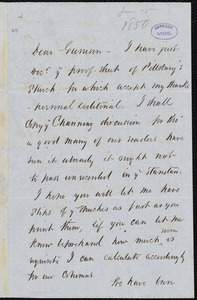 1850
Dear Garrison — I have just
rec'd y proof sheet of Pillsbury's
Sketch for which accept my thanks
- personal & editorial. I shall
copy y Channing discussion for tho'
a good many of our readers have
seen it already it ought not
to pass unrecorded in y Standard.
I hope you will let me have
slips of y Speeches as just as you
print them, & if you can let me
know beforehand how much, in
squares I can calculate accordingly
for our columns.
We have been